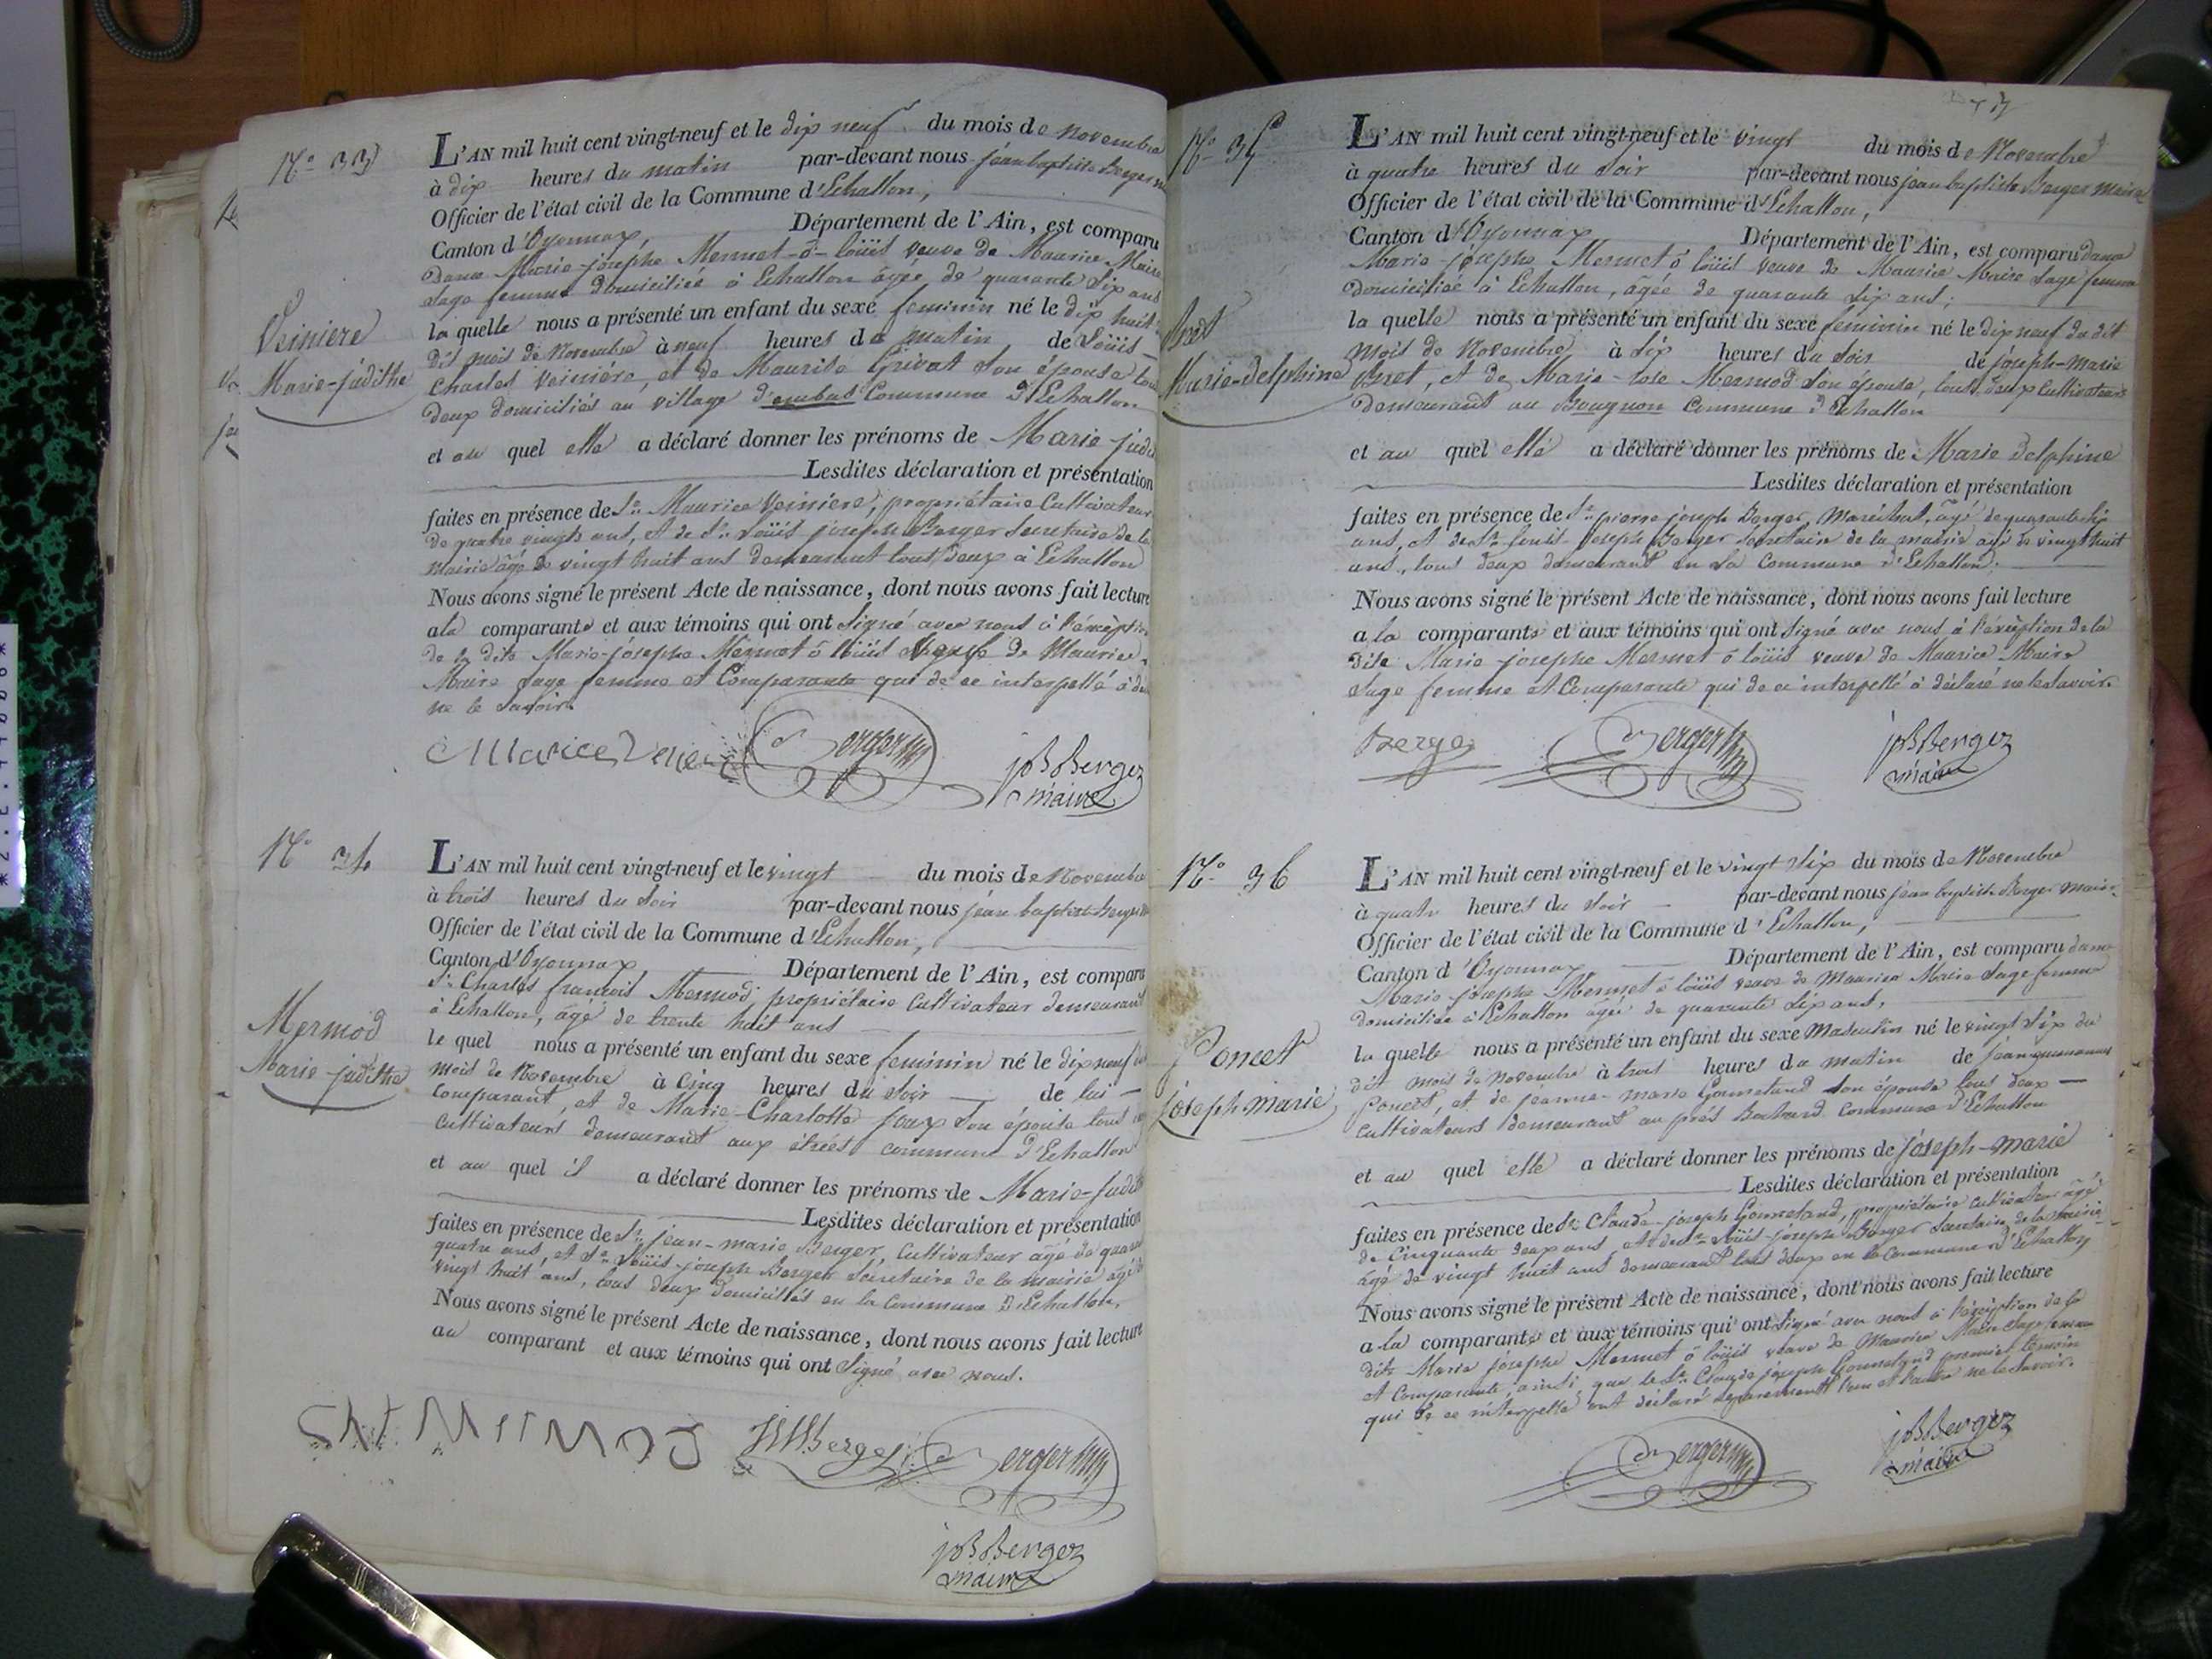 N.o 33
Veiniere
Marie-judithe
L'AN mil huit cent vingt-neuf et le dix neuf du mois de Novembre
à dix heures du matin par-devant nous jean baptiste Berger
Officier de l'état civil de la Commune d'Echallon,
Canton d'Oyonnax, Département de l'Ain, est comparu
Dame Marie-josephe Mermet-ô-loüis veuve de Maurice Maire
sage femme domiciliée à Echallon âgée de quarante six ans
la quelle nous a présenté un enfant du sexe feminin né le dix huit
dit mois de Novembre à neuf heures du matin de Loüis
Charles Veiniére, et de Maurise Grivat son épouse tous
deux domiciliés au village d'embas Commune d'Echallon
et au quel elle a déclaré donner les prénoms de Marie jud
Lesdites déclaration et présentation
faites en présence de Sr. Maurice Veiniere, propriétaire Cultivateur
de quatre vingts ans, et de Sr. Loüis joseph Berger Secretaire de la
mairie âgé de vingt huit ans demeurant tous deux à Echallon
Nous avons signé le présent Acte de naissance, dont nous avons fait lecture
a la comparante et aux témoins qui ont signé avec nous à l'éxception
de la dite Marie-josephe Mermet ô loüis veuve de Maurice
Maire sage femme et Comparante qui de ce interpellé à
ne le savoir.
Berger
jB Berger
maire
N.o 34
Mermod
Marie-judithe
L'AN mil huit cent vingt-neuf et le vingt du mois de Novembre
à trois heures du soir par-devant nous jean baptiste
Officier de l'état civil de la Commune d'Echallon,
Canton d'Oyonnax Département de l'Ain, est comparu
Sr. Charles françois Mermod, propriétaire Cultivateur demeurant
à Echallon, âgé de trente huit ans
le quel nous a présenté un enfant du sexe feminin né le dix neuf
mois de Novembre à Cinq heures du soir de lui
Comparant, et de Marie-Charlotte joux son épouse tous
Cultivateurs demeurant aux étrées commune d'Echallon
et au quel il a déclaré donner les prénoms de Marie-judit
Lesdites déclaration et présentation
faites en présence de Sr. jean-marie Berger, Cultivateur âgé de
quatre ans, et Sr. Loüis-joseph Berger Sécretaire de la mairie âgé
vingt huit ans, tous deux domiciliés en la Commune d'Echallon,
Nous avons signé le présent Acte de naissance, dont nous avons fait lecture
au comparant et aux témoins qui ont Signé avec nous.
Cht Mermod
Berger
Berger
jB Berger
maire
N.o 35
Bret
Marie-delphine
L'AN mil huit cent vingt-neuf et le vingt du mois de Novembre
à quatre heures du soir par-devant nous jean baptiste Berger maire
Officier de l'état civil de la Commune d'Echallon,
Canton d'Oyonnax Département de l'Ain, est comparu dame
Marie-josephe Mermet ô loüis veuve de Maurice Maire sage femme
domiciliée à Echallon, âgée de quarante six ans;
la quelle nous a présenté un enfant du sexe feminin né le dix neuf du dit
mois de Novembre à six heures du soir de joseph-marie
Bret, et de Marie-rose Mermod son épouse, tous deux Cultivateurs
demeurant au Bougnon Commune d'Echallon
et au quel elle a déclaré donner les prénoms de Marie delphine
Lesdites déclaration et présentation
faites en présence de Sr. pierre joseph Berger, Maréchal, âgé de quarante six
ans, et de Sr. Louis joseph Berger Sécretaire de la mairie âgé de vingt huit
ans, tous deux demeurant en la Commune d'Echallon.
Nous avons signé le présent Acte de naissance, dont nous avons fait lecture
a la comparante et aux témoins qui ont signé avec nous à l'éxception de la
dite Marie josephe Mermet ô loüis veuve de Maurice Maire
sage femme et Comparante qui de ce interpellé à déclaré ne le savoir.
Berger
Berger
jB Berger
maire
N.o 36
Poncet
joseph marie
L'AN mil huit cent vingt-neuf et le vingt six du mois de Novembre
à quatre heures du soir par-devant nous jean baptiste Berger maire
Officier de l'état civil de la Commune d'Echallon,
Canton d'Oyonnax Département de l'Ain, est comparu dame
Marie josephe Mermet ô loüis veuve de Maurice Maire sage femme
domiciliée à Echallon âgée de quarante six ans,
la quelle nous a présenté un enfant du sexe Masculin né le vingt six du
dit mois de Novembre à trois heures du matin de
Poncet, et de jeanne-marie Gonnetand son épouse tous deux
cultivateurs demeurant au prés Bertrand Commune d'Echallon
et au quel elle a déclaré donner les prénoms de joseph-marie
Lesdites déclaration et présentation
faites en présence de Sr. Claude-joseph Gonnetand, propriétaire cultivateur âgé
de Cinquante deux ans, et de Sr. Loüis-joseph Berger Secretaire de la Mairie
âgé de vingt huit ans demeurant tous deux en la Commune d'Echallon
Nous avons signé le présent Acte de naissance, dont nous avons fait lecture
a la comparante et aux témoins qui ont Signé avec nous à l'éxception de la
dite Marie josephe Mermet ô loüis veuve de Maurice Maire sage femme
et Comparante, ainsi que le Sr. Claude joseph Gonnetand premier témoin
qui de ce interpellé ont déclaré séparément l'un et l'autre ne le savoir.
Berger
jB Berger
maire